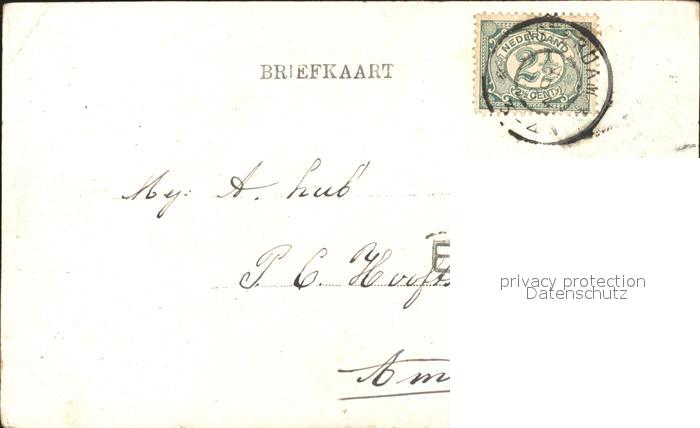 BRIEFKAART
NEDERLAND
2½
2½ CENT
DAM
My: A. hub
P. C. Hooft
Am
privacy protection
Datenschutz